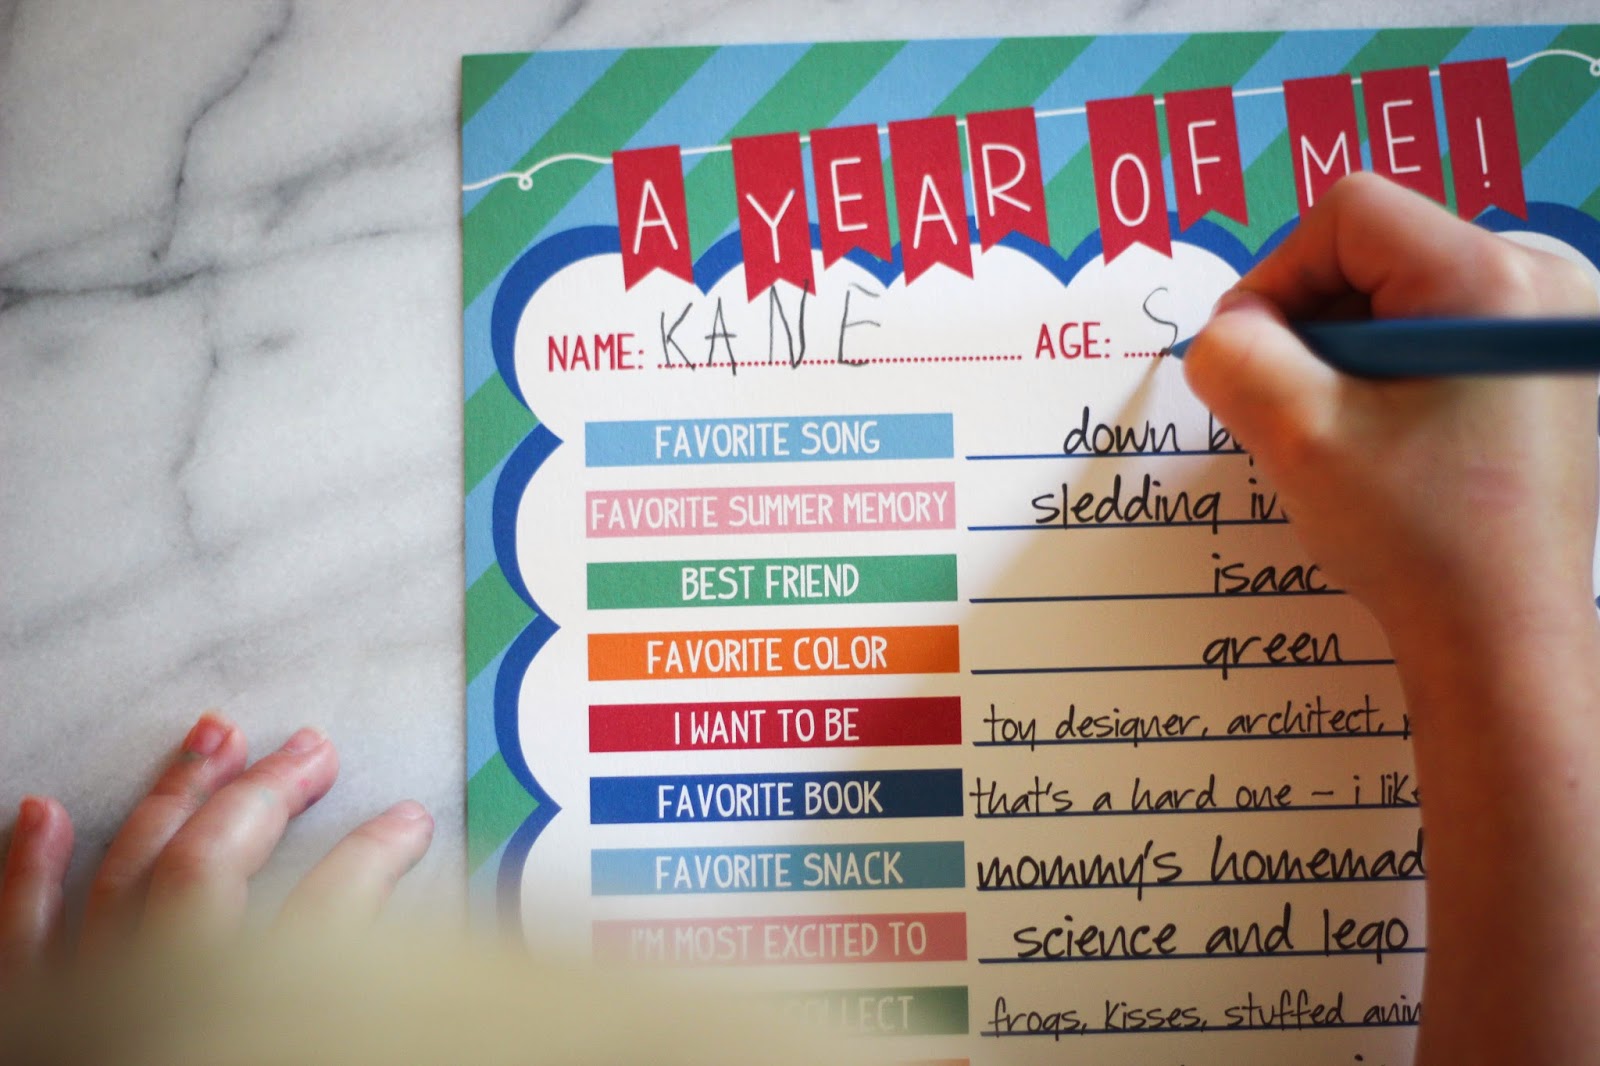 A YEAR OF ME!
NAME: KANE AGE: S
FAVORITE SONG down
FAVORITE SUMMER MEMORY sledding
BEST FRIEND isaac
FAVORITE COLOR green
I WANT TO BE toy designer, architect,
FAVORITE BOOK that's a hard one - i like
FAVORITE SNACK mommy's homemad
I'M MOST EXCITED TO science and lego
COLLECT frogs, kisses, stuffed